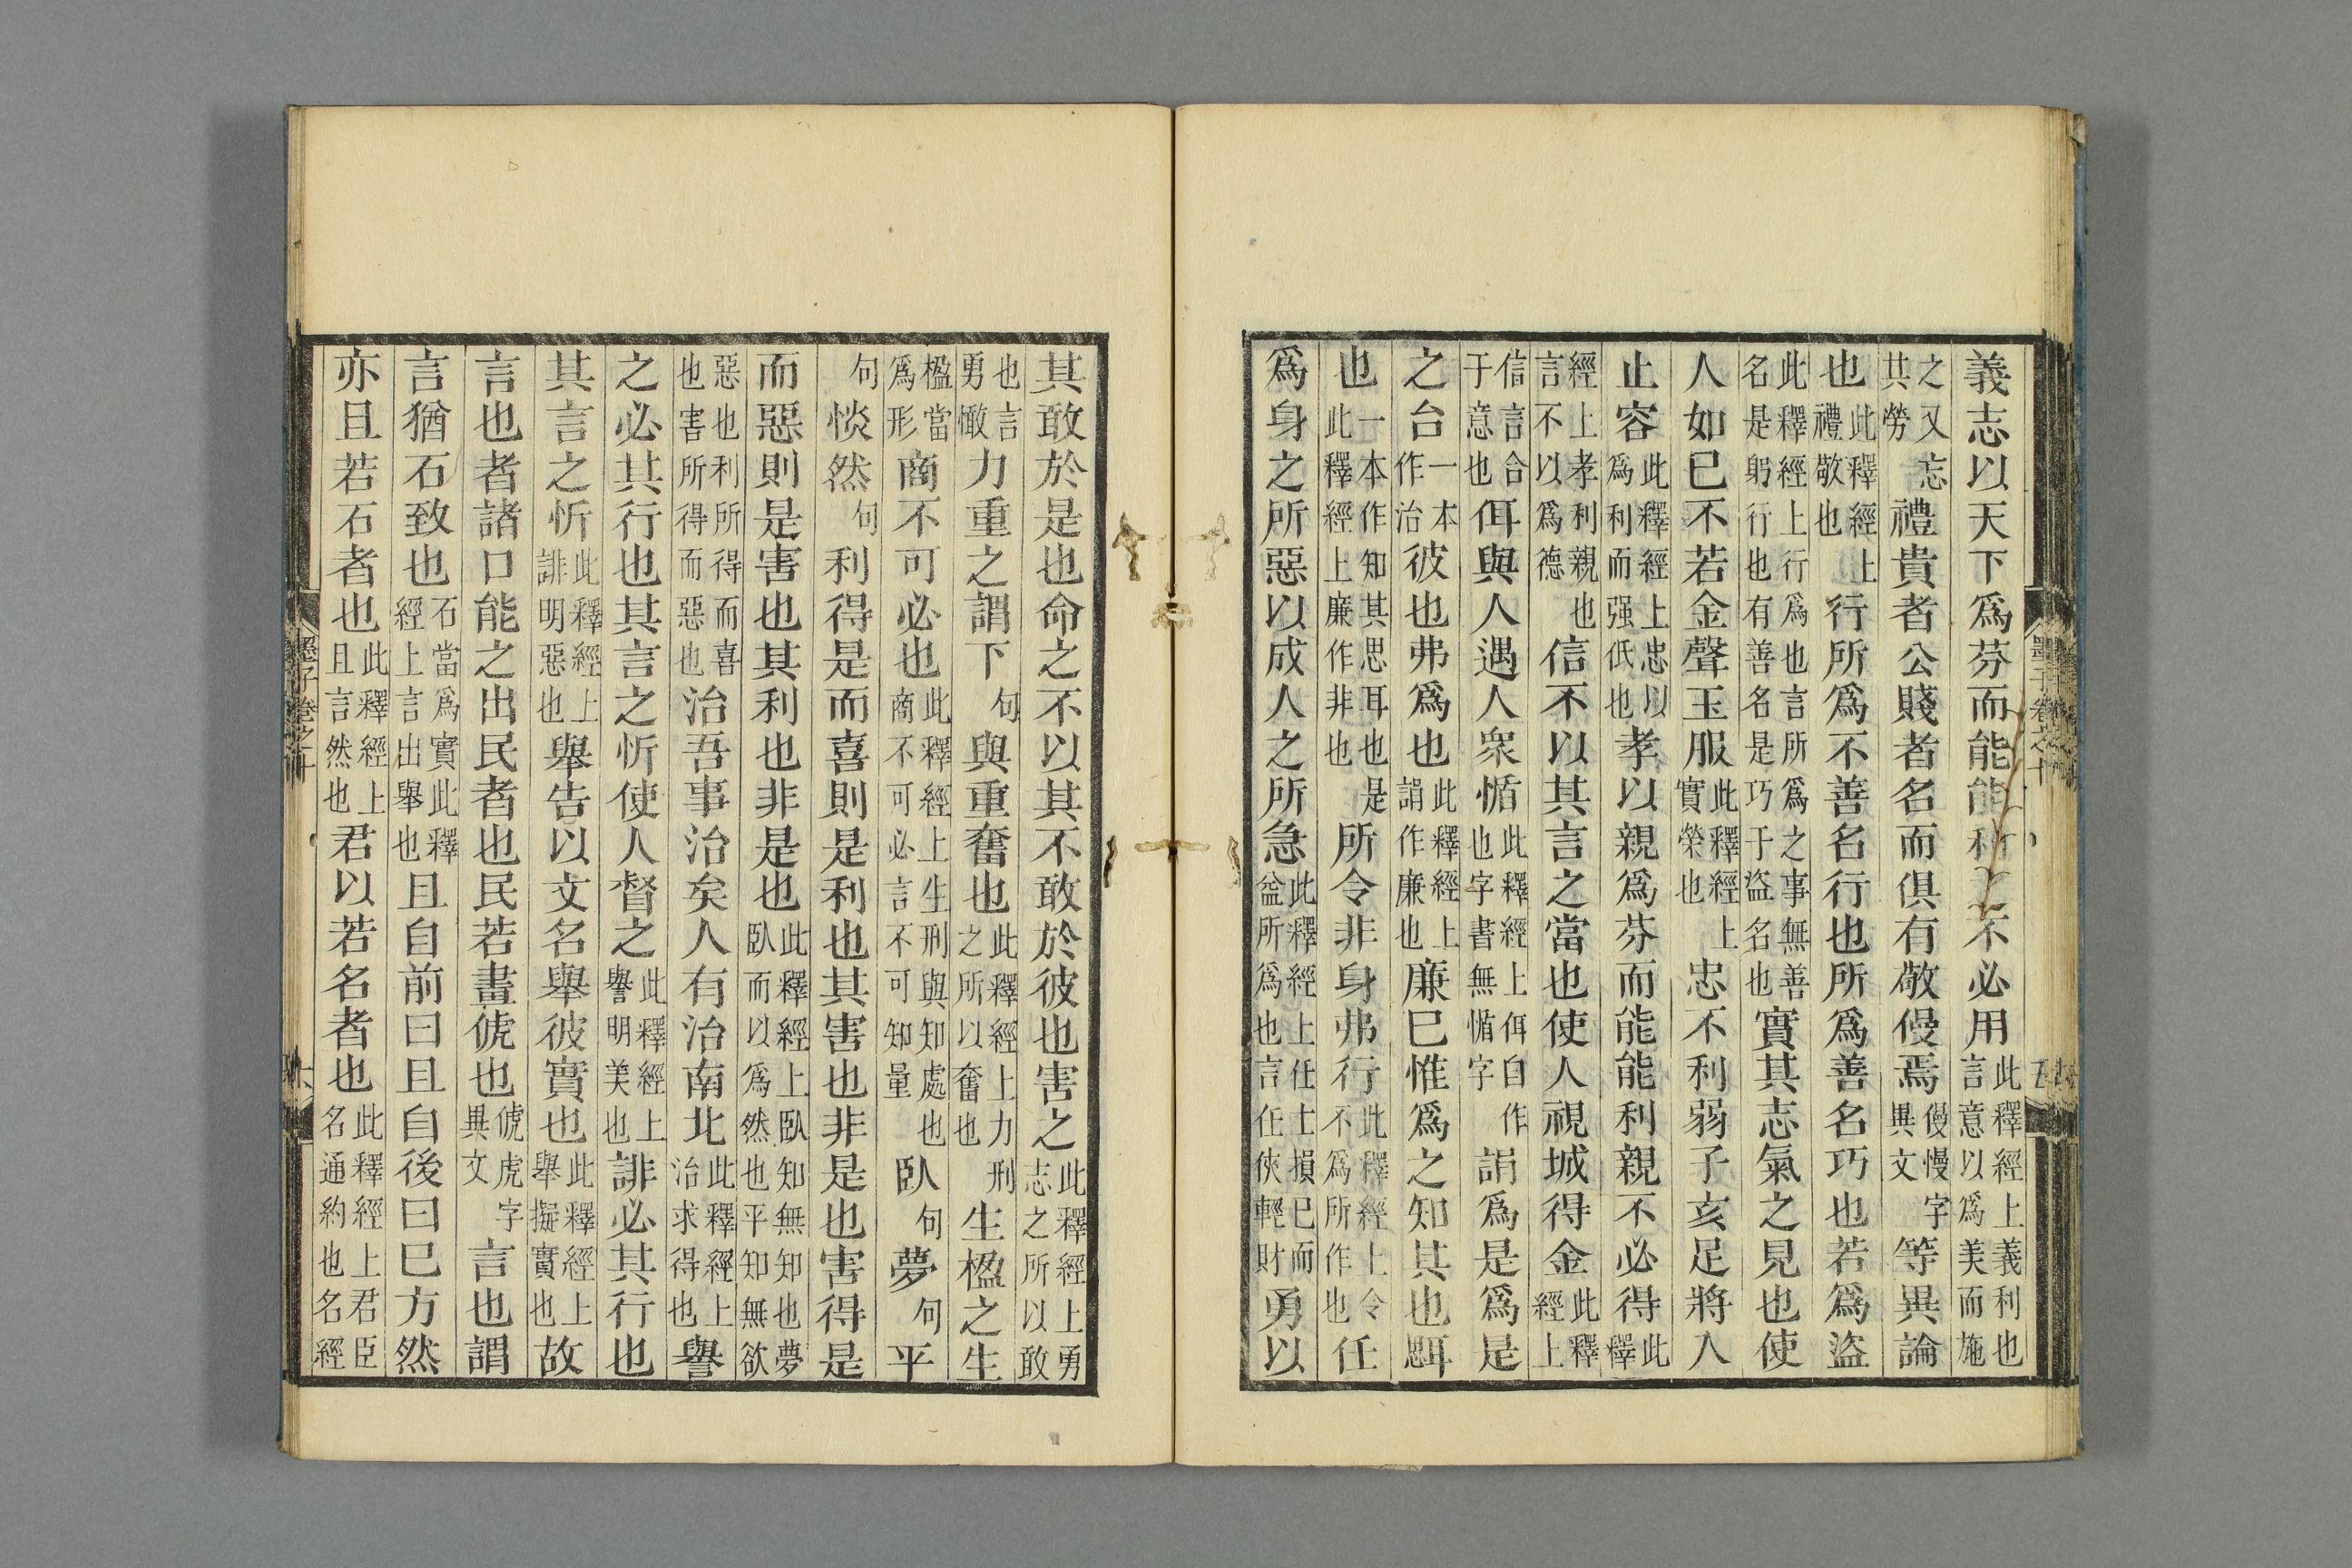 義志以天下爲芬而能能利之不必用此釋經上義利也言意以爲美而施
之又忘其勞禮貴者公賤者名而俱有敬僈焉僈慢字異文等異論
也此釋經上禮敬也行所爲不善名行也所爲善名巧也若爲盜
此釋經上行爲也言所爲之事無善名是躬行也有善名是巧于盜名也實其志氣之見也使
人如巳不若金聲玉服此釋經上實榮也忠不利弱子亥足將入
止容此釋經上忠以爲利而强低也孝以親爲芬而能能利親不必得此釋
經上孝利親也言不以爲德信不以其言之當也使人視城得金此釋經上
信言合于意也佴與人遇人衆㥧此釋經上佴自作也字書無㥧字誚爲是爲是
之台一本作治彼也弗爲也此釋經上誚作廉也廉巳惟爲之知其也䛊
也一本作知其思耳也是此釋經上廉作非也所令非身弗行此釋經上令不爲所作也任
爲身之所惡以成人之所急此釋經上任士損巳而益所爲也言任俠輕財勇以
墨子卷之十
五
其敢於是也命之不以其不敢於彼也害之此釋經上勇志之所以敢
也言勇憿力重之謂下句與重奮也此釋經上力刑之所以奮也生楹之生
楹當爲形商不可必也此釋經上生刑與知處也商不可必言不可知量臥句夢句平
句惔然句利得是而喜則是利也其害也非是也害得是
而惡則是害也其利也非是也此釋經上臥知無知也夢臥而以爲然也平知無欲
惡也利所得而喜也害所得而惡也治吾事治矣人有治南北此釋經上治求得也譽
之必其行也其言之忻使人督之此釋經上譽明美也誹必其行也
其言之忻此釋經上誹明惡也舉告以文名舉彼實也此釋經上舉擬實也故
言也者諸口能之出民者也民若畫俿也俿虎字異文言也謂
言猶石致也石當爲實此釋經上言出舉也且自前曰且自後曰巳方然
亦且若石者也此釋經上且言然也君以若名者也此釋經上君臣名通約也名經
墨子卷之十
六